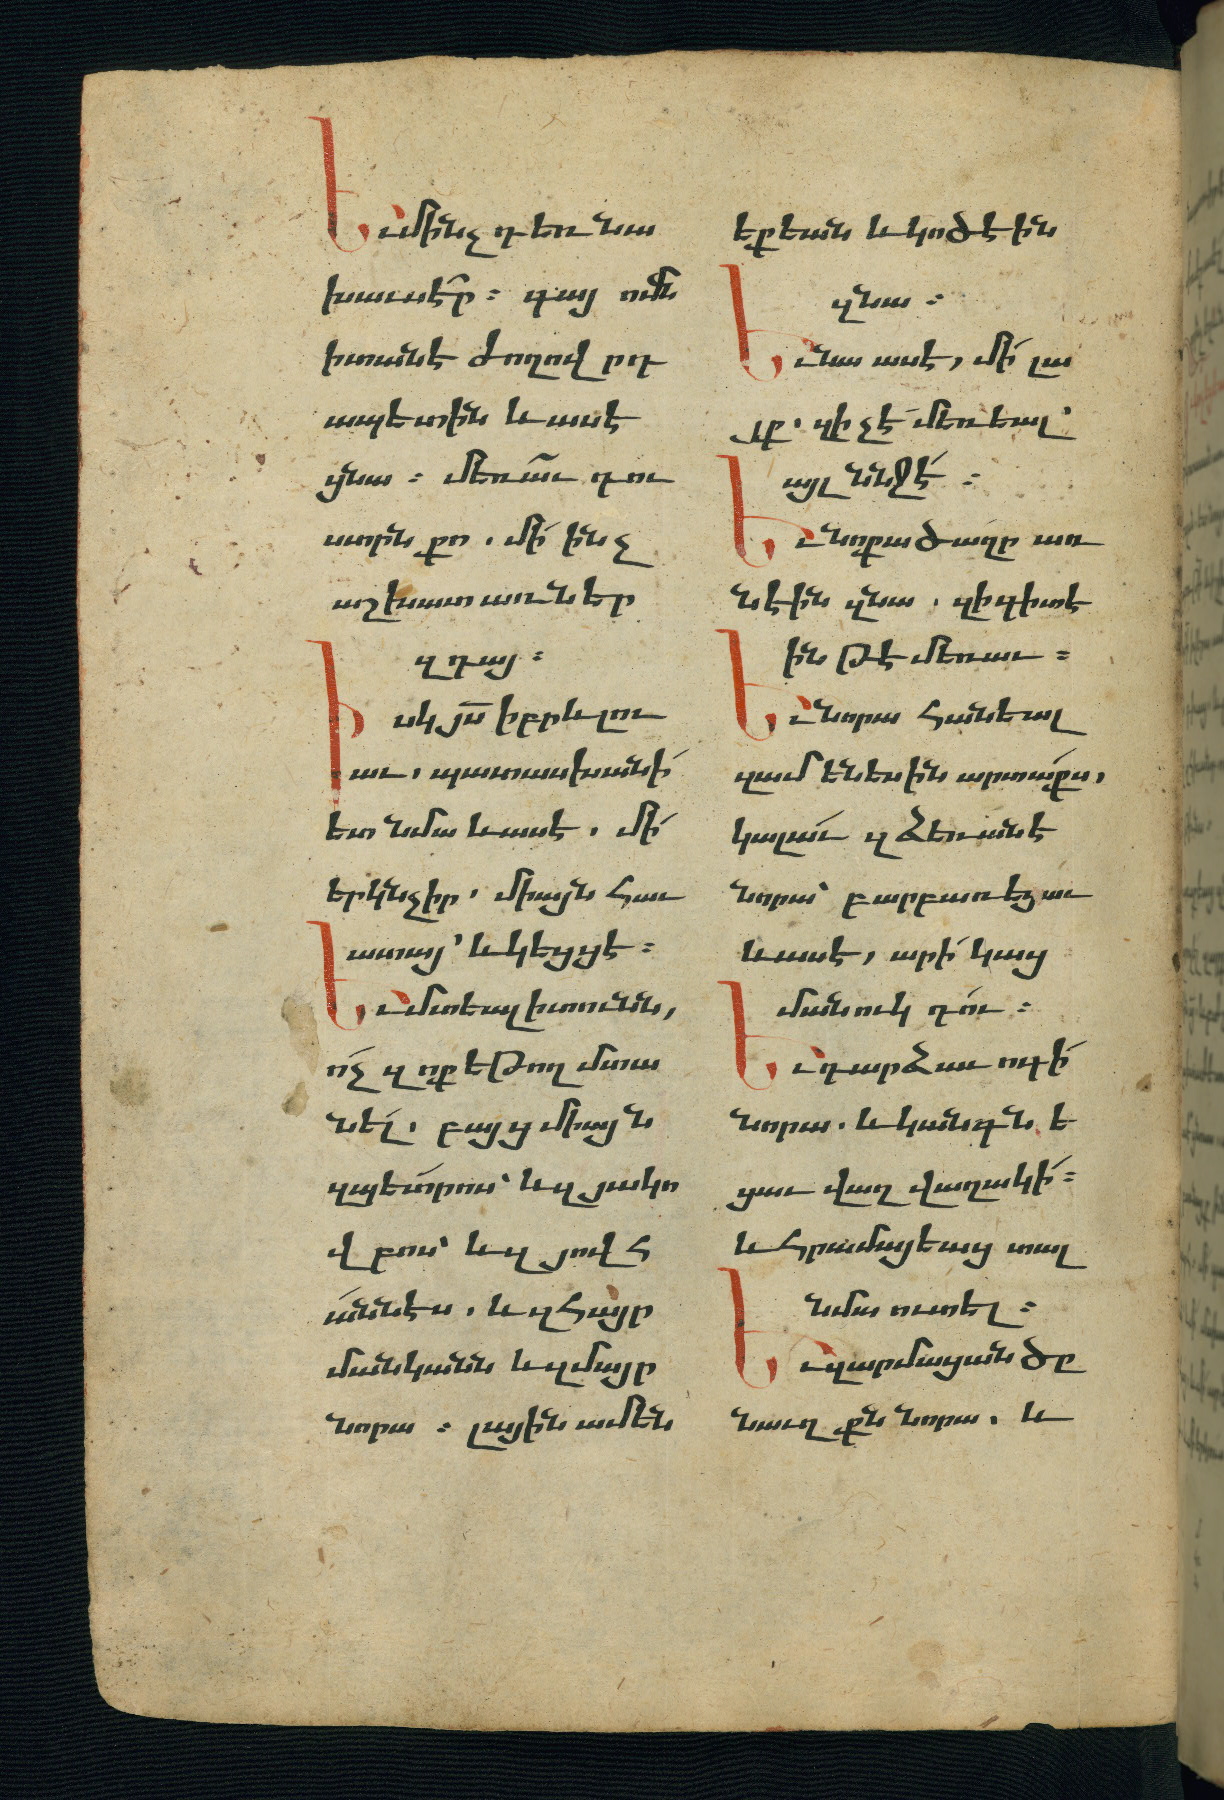 Եւ մինչ դեռ նա
խաւսէր։ գայ ոմն
ի տանէ ժողովրդ
ապետին և ասէ
ցնա։ մեռաւ դու
ստրն քո. մի ինչ
աշխատ առներ
զդայ։
Իսկ յս իբրև լու
աւ, պատասխանի
ետ նմա և ասէ. մի
երկնչիր. միայն հաւ
ատայ՝ և կեցցէ։
Եւ մտեալ ի տունն,
ոչ զոք եթող մտա
նել. բայց միայն
զպետրոս՝ և զյակո
վբոս՝ և զյովհ
աննէս. և զհայր
մանկանն և զմայր
նորա։ լային ամեն
եքեան և կոծէին
զնա։
Եւ նա ասէ, մի լա
յք. զի չէ մեռեալ՝
այլ ննջէ։
Եւ նոքա ծաղր առ
նէին զնա. զի գիտէ
ին թէ մեռաւ։
Եւ նորա հանեալ
զամենեսին արտաքս,
կալաւ զձեռանէ
նորա՝ բարբառեցաւ
և ասէ, արի կաց
մանուկ դու։
Եւ դարձաւ ոգի
նորա. և կանգնե
ցաւ վաղվաղակի։
և հրամայեաց տալ
նմա ուտել։
Եւ զարմացան ծը
նաւղքն նորա. և